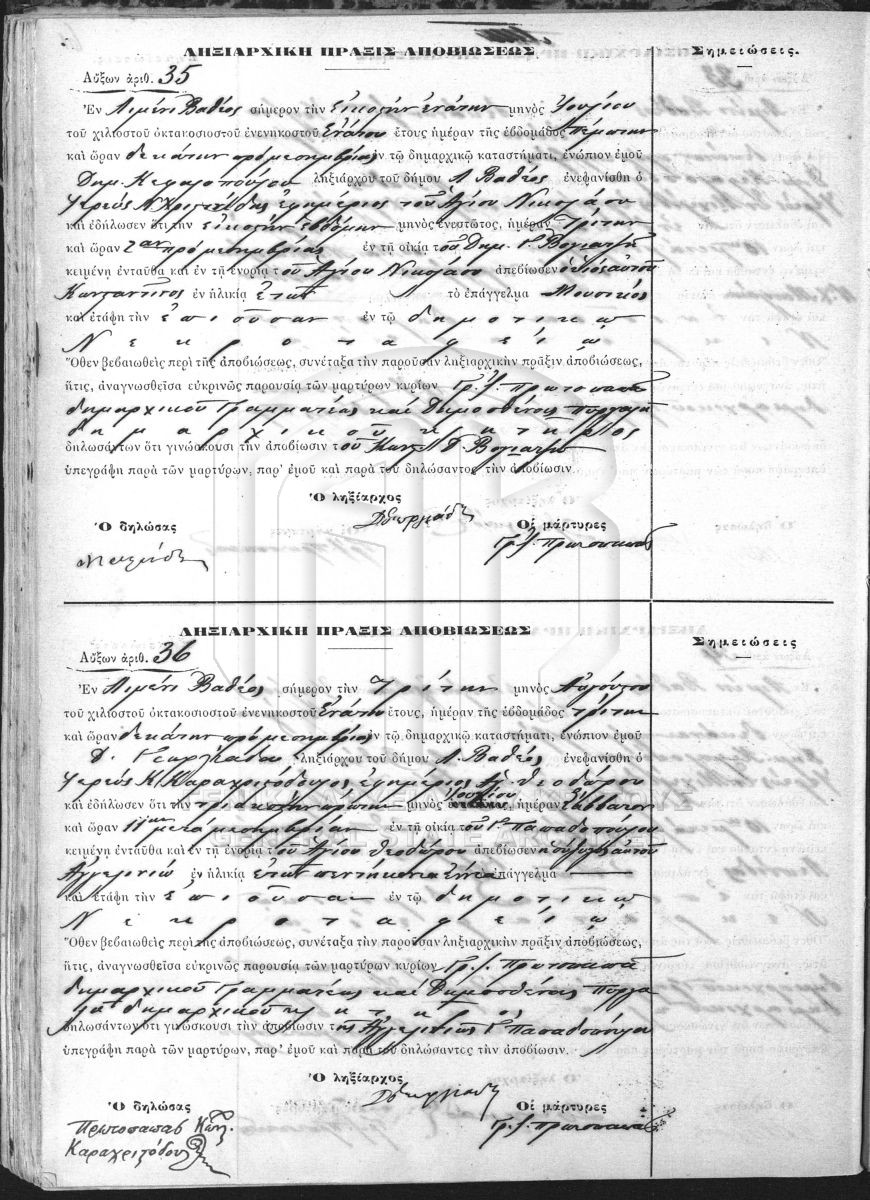 ΛΗΞΙΑΡΧΙΚΗ ΠΡΑΞΙΣ ΑΠΟΒΙΩΣΕΩΣ
Σημειώσεις.
Αὔξων ἀριθ. 35
Ἐν Λιμένι Βαθέος σήμερον τὴν εἰκοστὴν ἐνάτην μηνὸς Ἰουλίου
τοῦ χιλιοστοῦ ὀκτακοσιοστοῦ ἐνενηκοστοῦ ἐνάτου ἔτους ἡμέραν τῆς ἑβδομάδος Πέμπτην
καὶ ὥραν δεκάτην πρὸ μεσημβρίας ἐν τῷ δημαρχικῷ καταστήματι, ἐνώπιον ἐμοῦ
Δημ. ληξιάρχου τοῦ δήμου Λ. Βαθέος ἐνεφανίσθη ὁ
Ἱερεὺς ἐφημέριος τοῦ Ἁγίου Νικολάου
καὶ ἐδήλωσεν ὅτι τὴν εἰκοστὴν ἑβδόμην μηνὸς ἐνεστῶτος, ἡμέραν Τρίτην
καὶ ὥραν 2αν πρὸ μεσημβρίας ἐν τῇ οἰκίᾳ τοῦ Δημ. Γ.
κειμένῃ ἐνταῦθα καὶ ἐν τῇ ἐνορίᾳ τοῦ Ἁγίου Νικολάου ἀπεβίωσεν ὁ υἱὸς αὐτοῦ
Κωνσταντῖνος ἐν ἡλικίᾳ ἐτῶν τὸ ἐπάγγελμα Μουσικὸς
καὶ ἐτάφη τὴν ἐπιοῦσαν ἐν τῷ δημοτικῷ
Νεκροταφείῳ
Ὅθεν βεβαιωθεὶς περὶ τῆς ἀποβιώσεως, συνέταξα τὴν παροῦσαν ληξιαρχικὴν πρᾶξιν ἀποβιώσεως,
ἥτις, ἀναγνωσθεῖσα εὐκρινῶς παρουσίᾳ τῶν μαρτύρων κυρίων Γρ. Ι. Πρωτοπαπᾶ
δημαρχικοῦ Γραμματέως καὶ Δημοσθένους
δημαρχικοῦ κλητῆρος
δηλωσάντων ὅτι γινώσκουσι τὴν ἀποβίωσιν τοῦ Κωνστ. Δ.
ὑπεγράφη παρὰ τῶν μαρτύρων, παρ' ἐμοῦ καὶ παρὰ τοῦ δηλώσαντος τὴν ἀποβίωσιν.
Ὁ ληξίαρχος
Ὁ δηλώσας
Οἱ μάρτυρες
Γρ. Ι. Πρωτοπαπᾶς
ΛΗΞΙΑΡΧΙΚΗ ΠΡΑΞΙΣ ΑΠΟΒΙΩΣΕΩΣ
Σημειώσεις
Αὔξων ἀριθ. 36
Ἐν Λιμένι Βαθέος σήμερον τὴν Τρίτην μηνὸς Αὐγούστου
τοῦ χιλιοστοῦ ὀκτακοσιοστοῦ ἐνενηκοστοῦ ἐνάτου ἔτους, ἡμέραν τῆς ἑβδομάδος Τρίτην
καὶ ὥραν δεκάτην πρὸ μεσημβρίας ἐν τῷ δημαρχικῷ καταστήματι, ἐνώπιον ἐμοῦ
Δ. Γεωργιάδου ληξιάρχου τοῦ δήμου Λ. Βαθέος ἐνεφανίσθη ὁ
Ἱερεὺς Κ. Καραχριστόδουλος ἐφημέριος Ἁγ. Θεοδώρου
καὶ ἐδήλωσεν ὅτι τὴν τριακοστὴν πρώτην μηνὸς Ἰουλίου, ἡμέραν Σάββατον
καὶ ὥραν 11ην μετὰ μεσημβρίαν ἐν τῇ οἰκίᾳ τοῦ Γ. Παπαδοπούλου
κειμένῃ ἐνταῦθα καὶ ἐν τῇ ἐνορίᾳ τοῦ Ἁγίου Θεοδώρου ἀπεβίωσεν ἡ σύζυγος αὐτοῦ
Ἀγγελινιὼ ἐν ἡλικίᾳ ἐτῶν πεντήκοντα ἐννέα ἐπάγγελμα
καὶ ἐτάφη τὴν ἐπιοῦσαν ἐν τῷ δημοτικῷ
Νεκροταφείῳ
Ὅθεν βεβαιωθεὶς περὶ τῆς ἀποβιώσεως, συνέταξα τὴν παροῦσαν ληξιαρχικὴν πρᾶξιν ἀποβιώσεως,
ἥτις, ἀναγνωσθεῖσα εὐκρινῶς παρουσίᾳ τῶν μαρτύρων κυρίων Γρ. Ι. Πρωτοπαπᾶ
δημαρχικοῦ Γραμματέως καὶ Δημοσθένους
δημαρχικοῦ
δηλωσάντων ὅτι γινώσκουσι τὴν ἀποβίωσιν τῆς Ἀγγελινιῶς Γ. Παπαδοπούλου
ὑπεγράφη παρὰ τῶν μαρτύρων, παρ' ἐμοῦ καὶ παρὰ τοῦ δηλώσαντος τὴν ἀποβίωσιν.
Ὁ ληξίαρχος
Ὁ δηλώσας
Οἱ μάρτυρες
Πρωτοπαπᾶς Κων.
Γρ. Ι. Πρωτοπαπᾶς